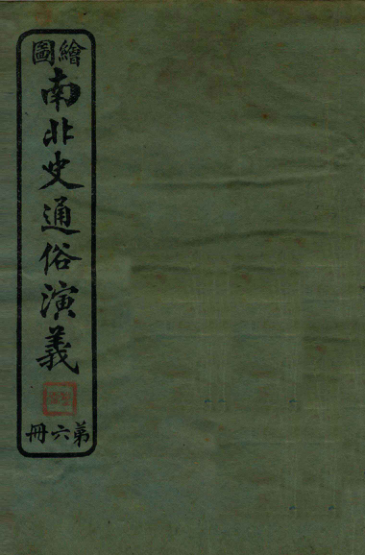 繪圖
南北史通俗演義
第六冊